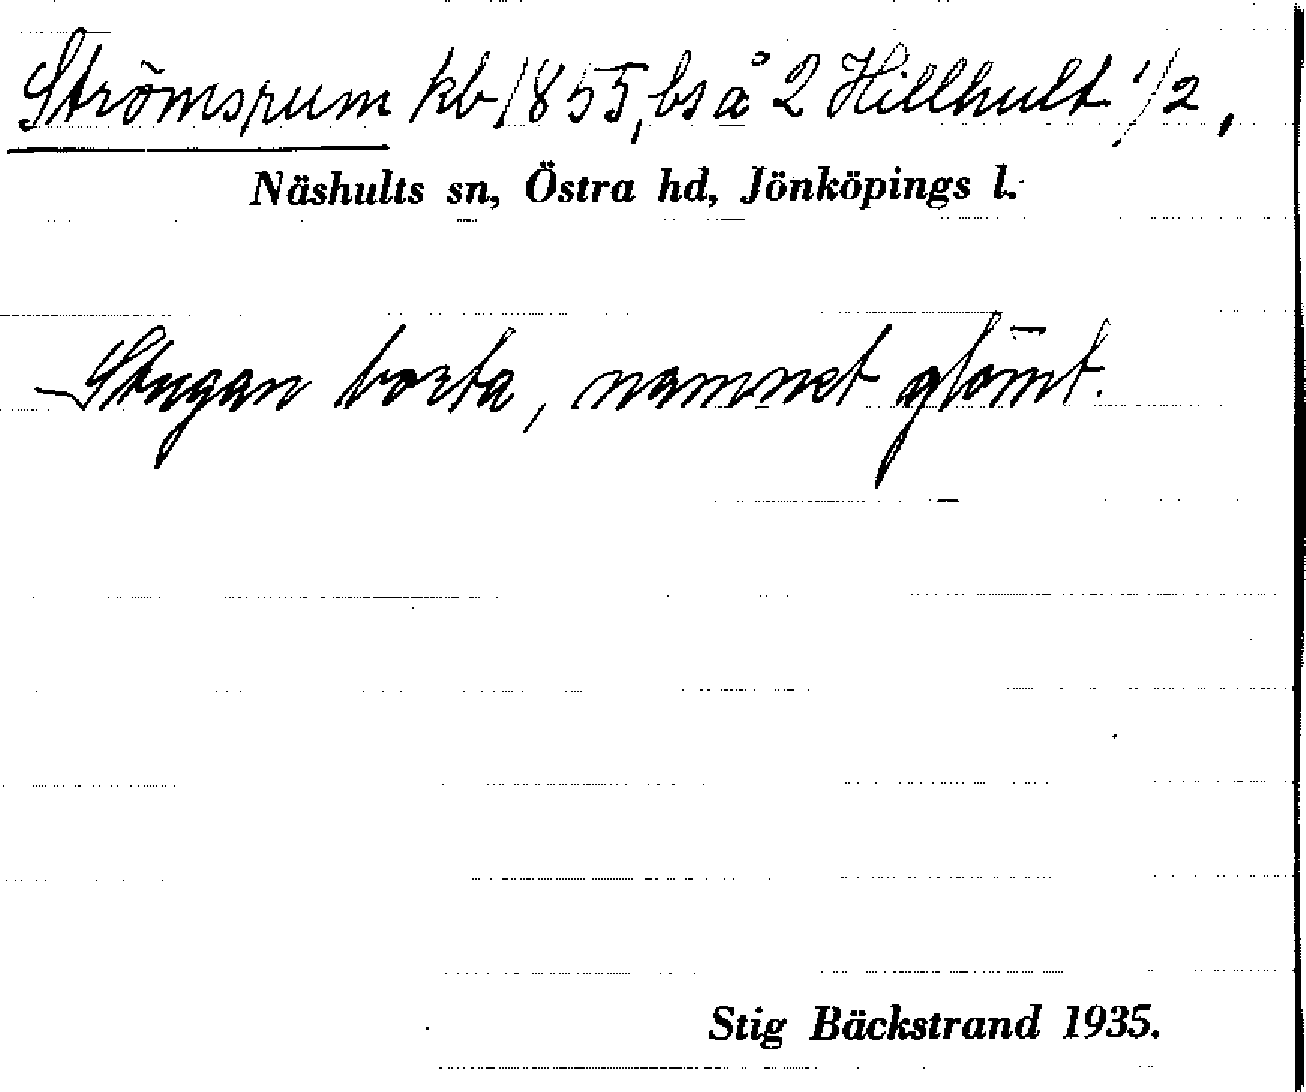 Strömsrum kb 1855, bs å 2 Hillhult 1/2,
Näshults sn, Östra hd, Jönköpings l.
Stugan borta, namnet glömt.
Stig Bäckstrand 1935.